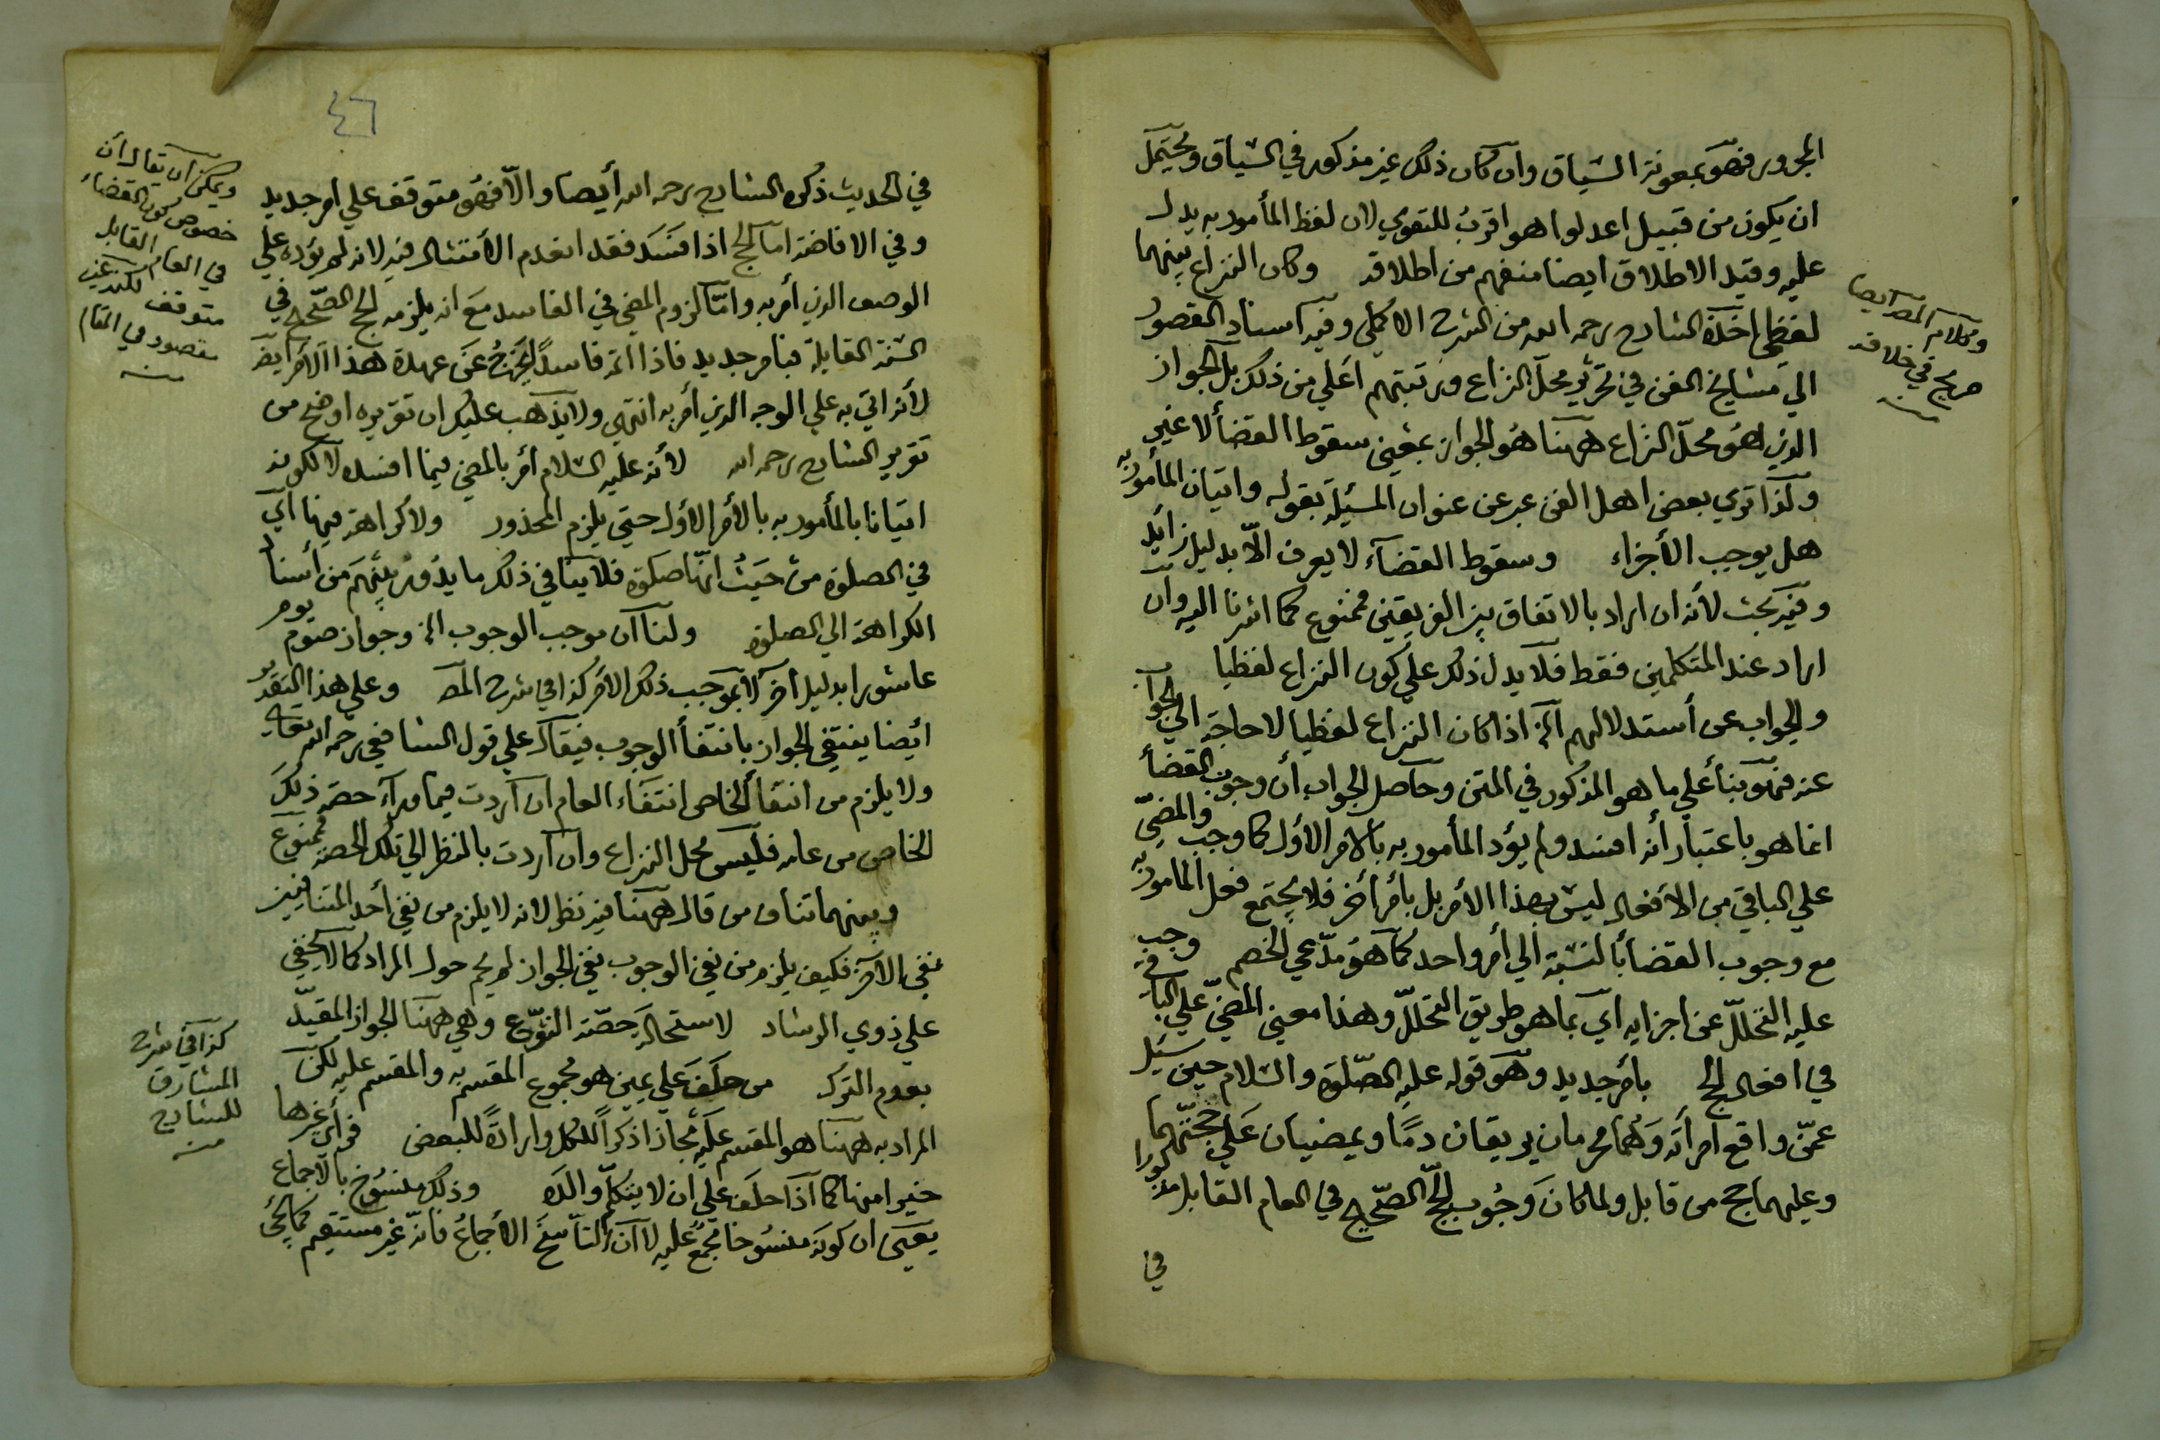 المجرور فهو بمعونة السياق وان كان ذلك غير مذكور في السياق ويحتمل
ان يكون من قبيل اعدلوا هو اقرب للتقوي لان لفظ المأمور به يدل
عليه وقيد الاطلاق ايضا منفهم من اطلاقه وكان النزاع بينهما
لفظي اخذه الشارح رحمه الله من الشرح الاكملي وفيه اسناد القصور
الي مشايخ الفن في تحرير محل النزاع ورتبتهم اعلي من ذلك بل الجواز
الذي هو محل النزاع ههنا هو الجواز بمعني سقوط القضا لا غير
ولذا تري بعض اهل الفن عبر عن عنوان المسئلة بقوله واتيان المأمور به
هل يوجب الأجزاء وسقوط القضاء لا يعرف الا بدليل زائد
وفيه بحث لأنه ان اراد بالاتفاق بين الفريقين فممنوع كما اشرنا اليه وان
اراد عند المتكلمين فقط فلا يدل ذلك علي كون النزاع لفظيا
والجواب عن أستدلالهم الخ اذا كان النزاع لفظيا لا حاجة الي الجواب
عنه فهو بنأ علي ما هو المذكور في المتن وحاصل الجواب أن وجوب القضأ
انما هو باعتبار أنه افسد ولم يؤد المأمور به بالامر الأول كما وجب والمضي
علي الباقي من الأفعال ليس بهذا الأمر بل بأمر أخر فلا يجتمع فعل المامور به
مع وجوب القضأ بالنسبة الي أمر واحد كما هو مدعي الخصم وجب
عليه التحلل عن اجزايه اي بما هو طريق التحلل وهذا معني المضي علي الباقي
في افعال الحج بأمر جديد وهو قوله عليه الصلوة والسلام حين سئل
عمن واقع امرأته وهما محرمان يريقان دما ويمضيان علي حجتهما
وعليهما حج من قابل ولما كان وجوب الحج الصحيح في العام القابل مذكورا
في
وكلام المصـ ايضا
صريح في خلافه
منه
٤٦
في الحديث ذكره الشارح رحمه الله أيضا والا فهو متوقف علي امر جديد
وفي الافاضة اما الحج اذا فسد فقد انعدم الأمتثال فيه لانه لم يؤده علي
الوصف الذي أمر به وامّا لزوم المضي في الفاسد مع انه يلزمه الحج الصحيح في
السنة القابلة فبأمر جديد فاذا اتمه فاسدا يخرج عن عهدة هذا الأمر ايضـ
لأنه اتي به علي الوجه الذي أمر به انتهي ولا يذهب عليك ان تقريره اوضح من
تقرير الشارح رحمه الله لأنه عليه السلام أمر بالمضي فيما افسده لا لكونه
اتيانا بالمأمور به بالأمر الأول حتي يلزم المحذور ولا كراهة فيها اي
في الصلوة من حيث انها صلوة فلا ينافي ذلك ما يدور بينهم من أسناد
الكراهة الي الصلوة ولنا ان موجب الوجوب الخ وجواز صوم يوم
عاشورا بدليل أخر لا بموجب ذلك الأمر كذا في شرح المصـ وعلي هذا التقدير
أيضا ينتفي الجواز بانتفأ الوجوب فيقال علي قول الشافعي رحمه الله تعالي
ولا يلزم من انتفأ الخاص انتفاء العام ان اردت فيما وراء حصة ذلك
الخاص من عامه فليس محل النزاع وان اردت بالنظر الي تلك الحصة فممنوع
وبينهما تناف من قال ههنا فيه نظر لانه لا يلزم من نفي أحد المتنافيين
نفي الأخر فكيف يلزم من نفي الوجوب نفي الجواز لم يحم حول المراد كما لا يخفي
علي ذوي الرشاد لاستحالة حصة النوع وهي ههنا الجواز المقيد
بعدم الترك من حلف علي يمين هو مجموع المقسم به والمقسم عليه لكن
المراد به ههنا هو المقسم عليه مجازا ذكرا للكل وارادة للبعض فرأي غيرها
خيرا منها كما اذا حلف علي ان لا يتكلم والده وذلك منسوخ بالاجماع
يعني ان كونه منسوخا مجمع عليه لا ان الناسخ الأجماع فانه غير مستقيم كما يجئ
ويمكن ان يقال ان
خصوص كون القضاء
في العام القابل
متوقف لكنه غير
مقصود في المقام
منه
كذا في شرح
المشارق
للشارح
منه